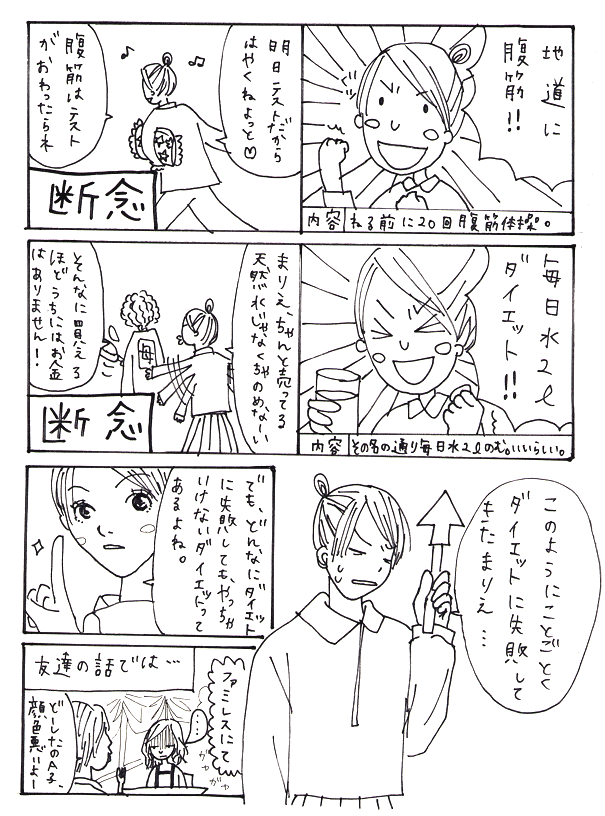 地道に
腹筋!!
内容 ねる前に20回腹筋体操。
明日テストだから
はやくねよっと♡
腹筋はテスト
がおわったらネ
断念
毎日水2ℓ
ダイエット!!
内容 その名の通り毎日水2ℓのむ。いいらしい。
まりえ、ちゃんと売ってる
天然水じゃなくちゃのめな〜い
母
そんなに買える
ほどうちにはお金
はありません!!
断念
このようにことごとく
ダイエットに失敗して
きたまりえ…
でも、どんなにダイエット
に失敗しても、やっちゃ
いけないダイエットって
あるよね。
友達の話では…
ファミレスにて
…
ガヤ
ガヤ
どーしたのA子、
顔色悪いよー